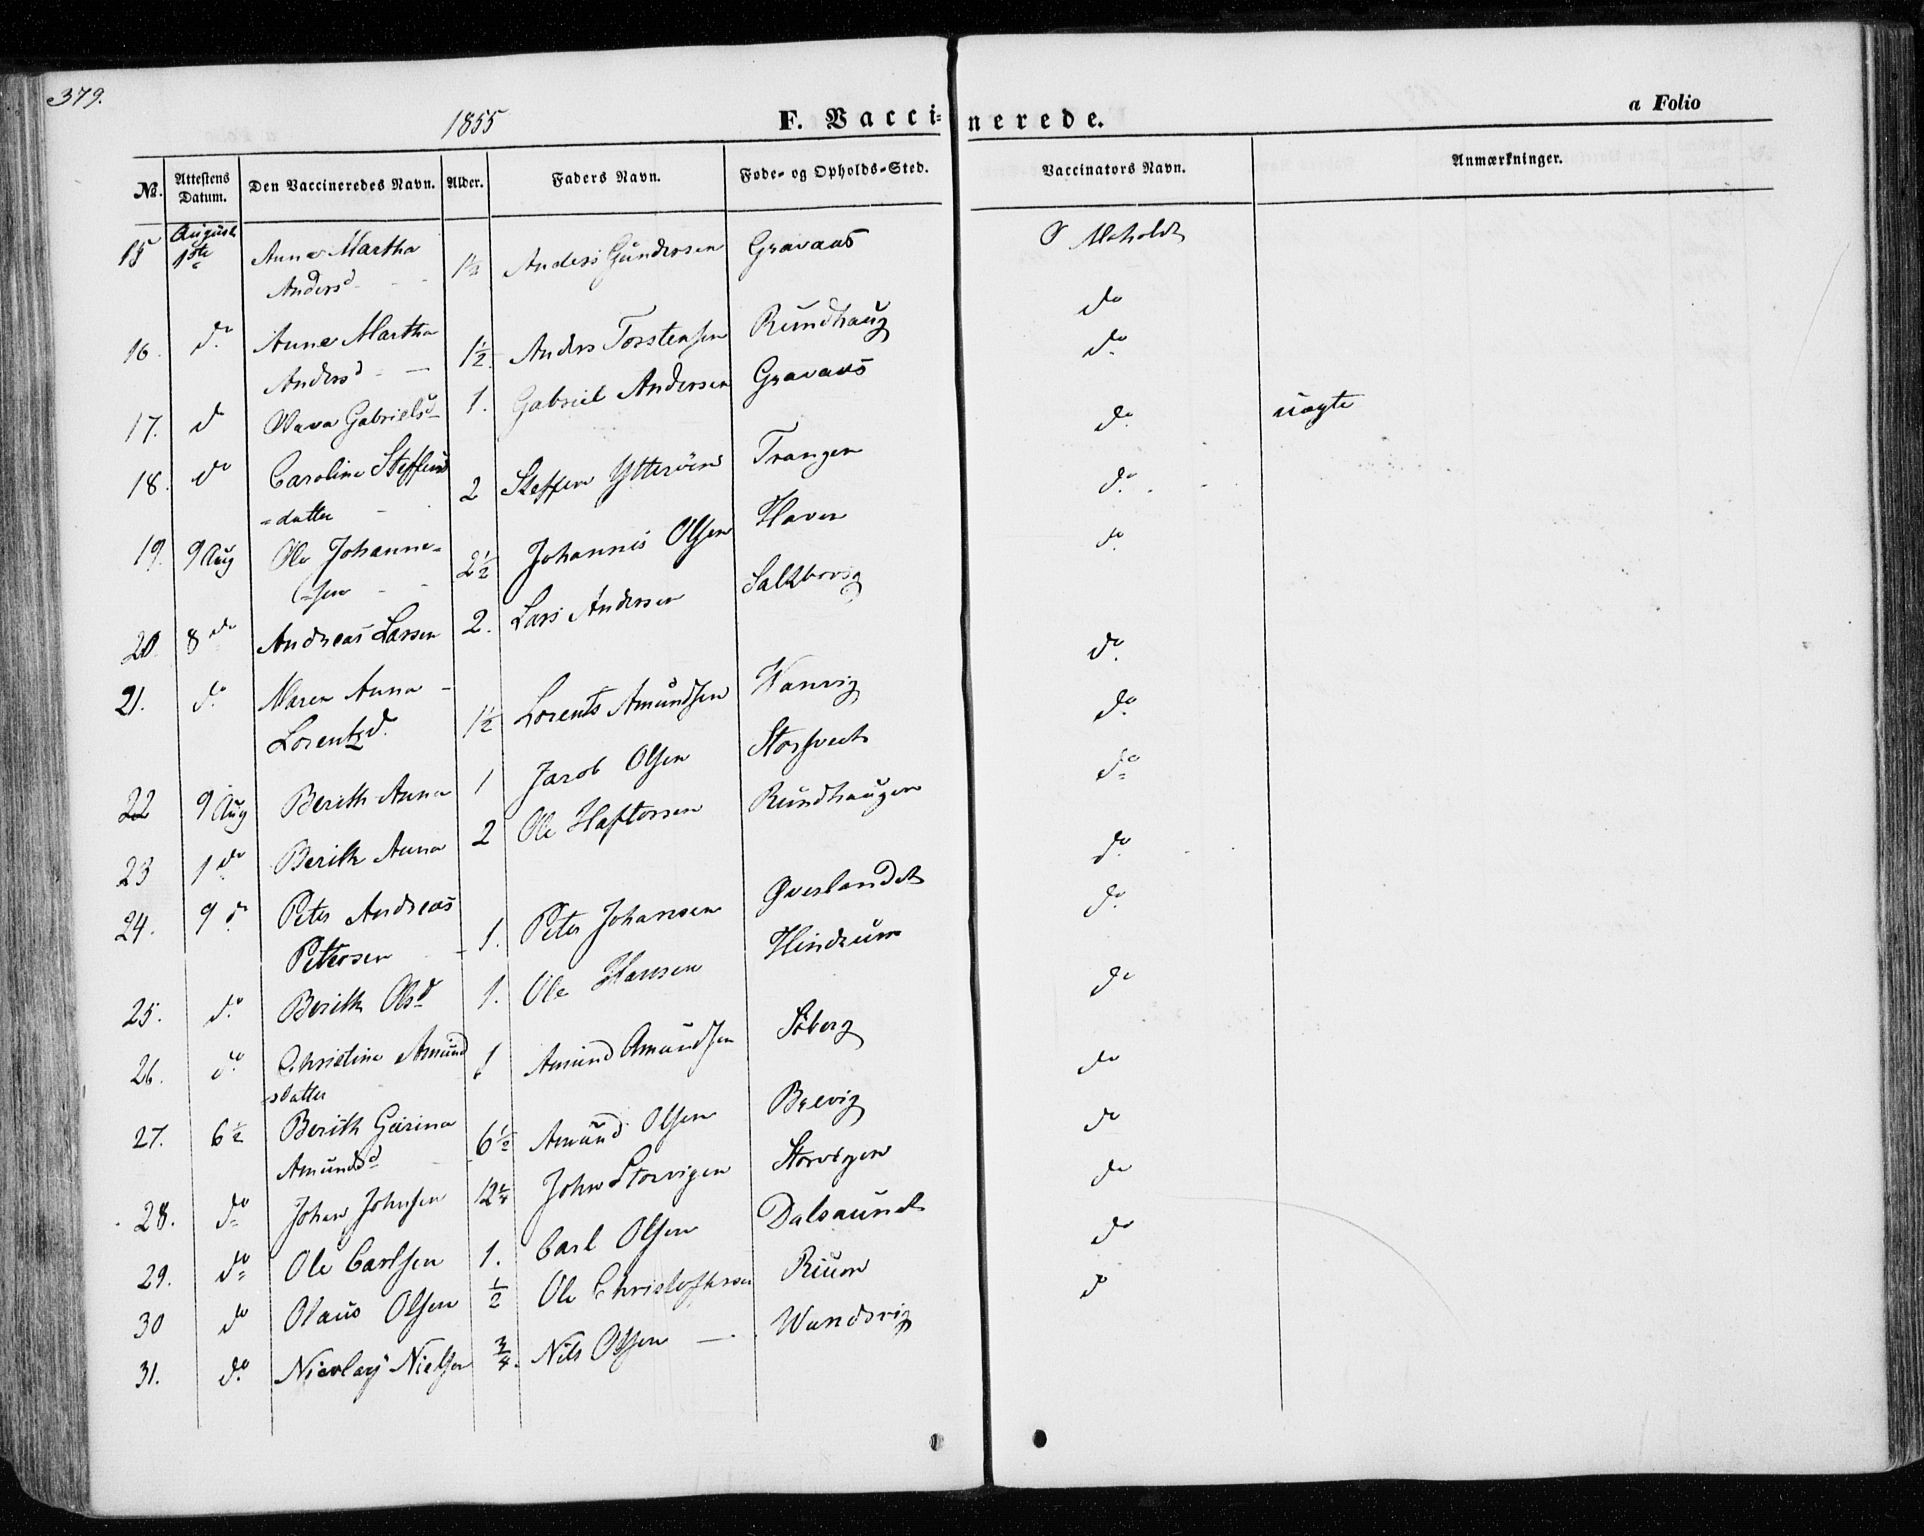 379.
1855
F. Vaccinerede.
a Folio
No. Attestens Datum. Den Vaccineredes Navn. Alder. Faders Navn. Føde- og Opholds-Sted. Vaccinators Navn. Anmærkninger.
15 August 1ste Anne Martha 1½ Anders Gundersen Gravaas
Andersd
16. do Anne Martha 1½ Anders Torstensen Rundhaug do
Andersd
17. d Gabrielsd 1. Gabriel Andersen Gravaas do
18. do Caroline Steffens 2 Steffen Ytterøen Trangen do uægte
=datter
19. 9 Aug Ole Johanne- 2½ Johannes Olsen Haven do
sen
20. 8 do Andreas Larsen 2. Lars Andersen do
21. do Maren Anna 1½ Lorents Amundsen Wanvig do
Lorentzd.
22 9 Aug Berith Anna 1 Jacob Olsen do
23 1 do Berith Anna 2 Ole Haftorsen Rundhaugen do
24. 9 do Peter Andreas 1. Peter Johansen Øverlandet do
Petersen
25. do Berith Olsd 1. Ole Hansen Hindrum do
26. do Christine Amund 1 Amund Amundsen Søberg do
sdatter
27. 6½ Berith 6½ Amund Olsen Brevig do
Amundsd
28. do Johan Johnsen John Storvigen Storvigen do
29. do Ole Carlsen 1. Carl Olsen Dalsaunet do
30 do Olaus Olsen ½ Ole Christophersen Rium do
31. do Nicolay Nielsen ¾. Nils Olsen Wandvig d